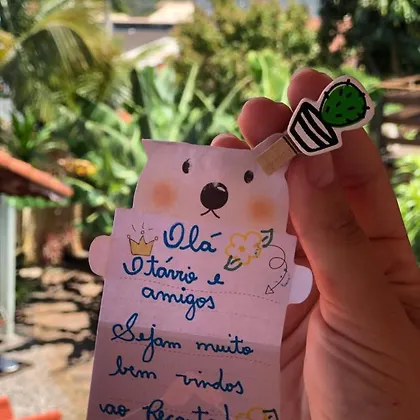 Olá
Otávio e
amigos
Sejam muito
bem vindos
ao